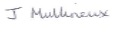 J Mullineux